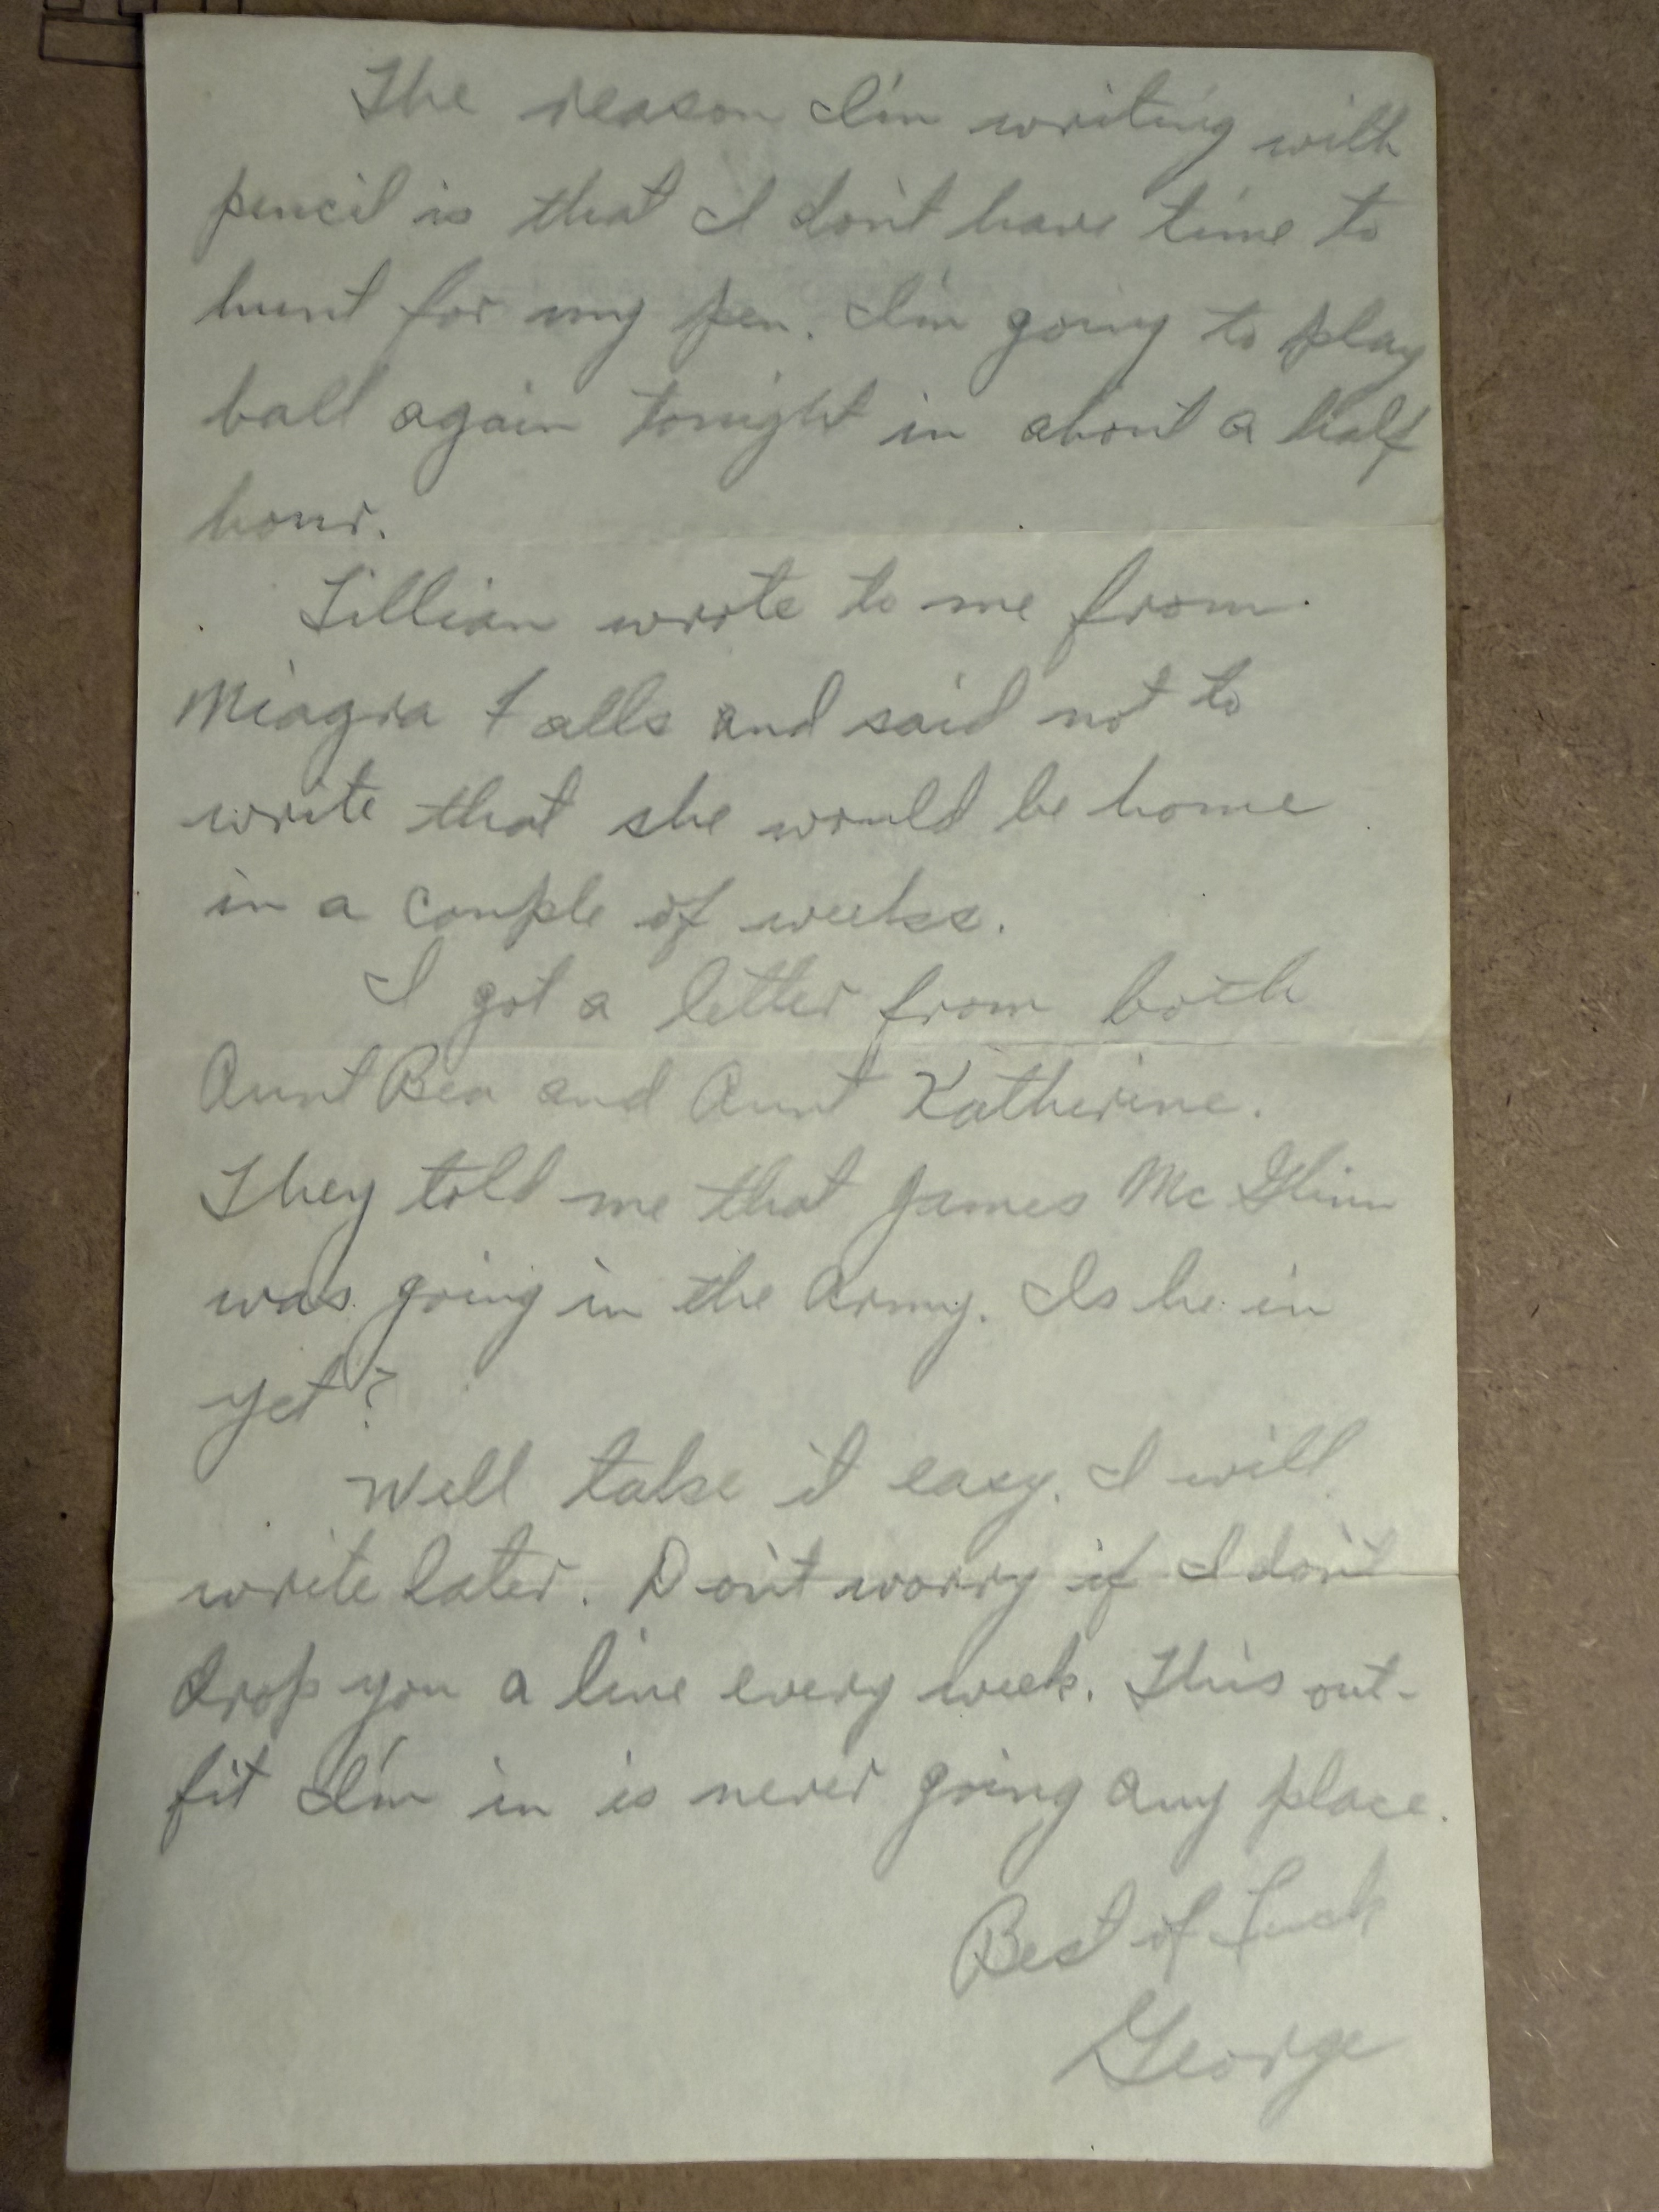 The reason I'm writing with
pencil is that I don't have time to
hunt for my pen. I'm going to play
ball again tonight in about a half
hour.
Lillian wrote to me from
Niagra Falls and said not to
write that she would be home
in a couple of weeks.
I got a letter from both
Aunt Bea and Aunt Katherine.
They told me that James Mc Glinn
was going in the Army. Is he in
yet?
Well take it easy. I will
write later. Don't worry if I don't
drop you a line every week. This out-
fit I'm in is never going any place.
Best of Luck
George